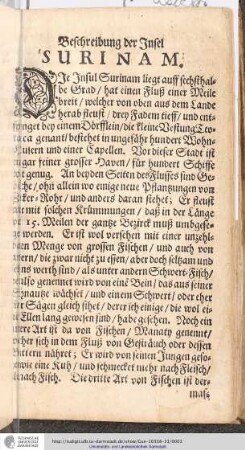 Beschreibung der Insel
SURINAM.
DJe Insul Surinam liegt auff sechsthal-
de Grad / hat einen Fluß einer Meile
breit / welcher von oben aus dem Lande
herab fleust / drey Fadem tieff / und ent-
springet bey einem Dörfflein / die kleine Vestung
genant / bestehet in ungefähr hundert Wohn-
Häusern und einer Capellen. Vor dieser Stadt ist
gar feiner grosser Haven / für hundert Schiffe
genug. An beyden Seiten des Flusses sind
/ ohn allein wo einige neue Pflantzungen von
Zucker-Rohr / und anders daran stehet; Er fleust
mit solchen Krümmungen / daß in der Länge
15. Meilen der gantze Bezirck muß umbge-
werden. Er ist wol versehen mit einer unzehl-
Menge von grossen Fischen / und auch von
/ die zwar nicht zu essen / aber doch seltzam und
werth sind / als unter andern Schwert-Fisch /
also genennet wird von eine Bein / das aus seiner
Schnautze wächset / und einem Schwert / oder eher
Sägen gleich sihet / derer ich einige / die wol ei-
Ellen lang gewesen sind / habe gesehen. Noch ein
andere Art ist da von Fischen / Manaty genennt /
sich in dem Fluß von Gesträuch oder dessen
Blättern nähret; Er wird von seinen Jungen geso-
wie eine Kuh / und schmecket mehr nach Fleisch /
nach Fisch. Die dritte Art von Fischen ist der-
mas;
Universitäts- und Landesbibliothek Darmstadt